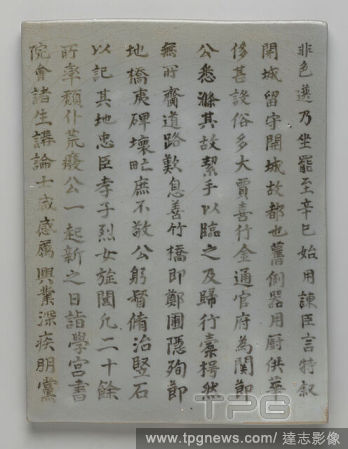 非色遷乃坐罷至辛巳始用諫臣言特叙
開城留守開城故都也舊例器用厨供華
侈甚設俗多大賈喜行金通官府為關節
公悉滌其故絜手以臨之及歸行橐枵然
無所齎道路歎息善竹橋即鄭圃隱殉節
地橋夷碑壞庶不敬公躬督脩治竪石
以記其地忠臣孝子烈女旌閭凡二十餘
所率頹仆荒廢公一起新之日詣學宮書
院會諸生講論士咸感厲興業深疾朋黨
TPG
www.tpgnews.com / 達志影像